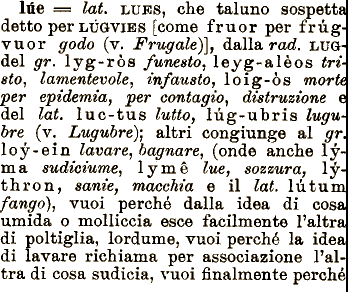 lúe = lat. LUES, che taluno sospetta
detto per LÚGVIES [come fruor per frúg-
vuor godo (v. Frugale)], dalla rad. LUG-
del gr. lyg-ròs funesto, leyg-alèos tri-
sto, lamentevole, infausto, loig-òs morte
per epidemia, per contagio, distruzione e
del lat. luc-tus lutto, lúg-ubris lugu-
bre (v. Lugubre); altri congiunge al gr.
loý-ein lavare, bagnare, (onde anche lý-
ma sudiciume, lymê lue, sozzura, lý-
thron, sanie, macchia e il lat. lútum
fango), vuoi perché dalla idea di cosa
umida o molliccia esce facilmente l'altra
di poltiglia, lordume, vuoi perché la idea
di lavare richiama per associazione l'al-
tra di cosa sudicia, vuoi finalmente perché